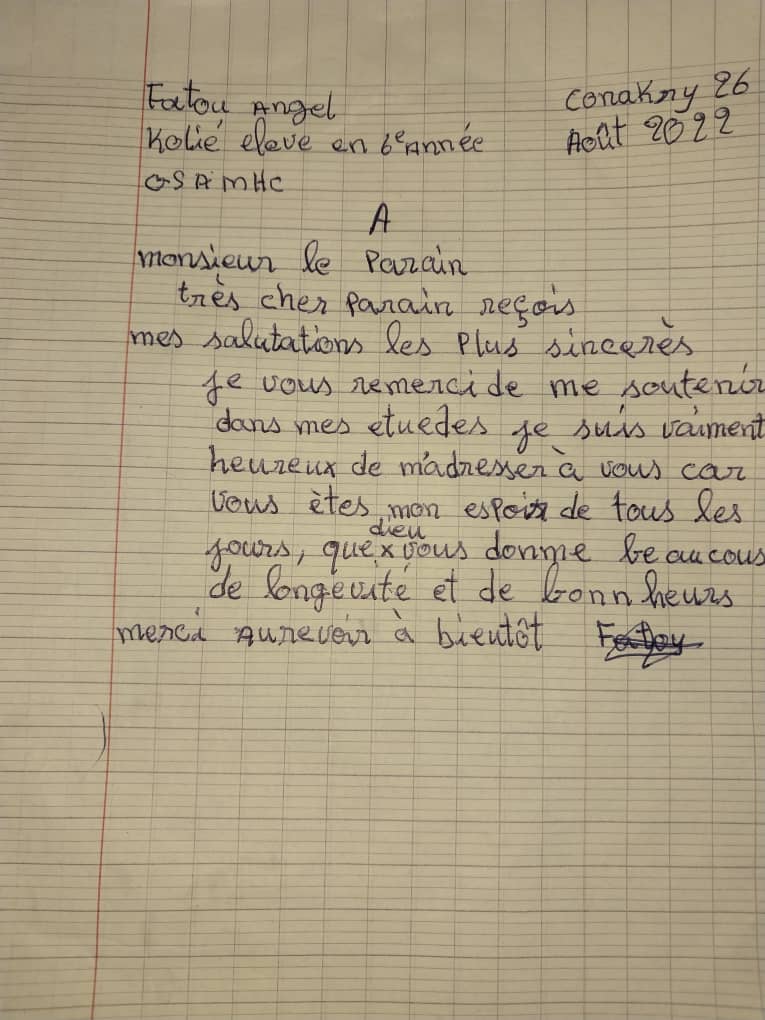 Fatou Angel
Conakry 26
Kolié eleve en 6e Année
Août 2022
GSAMHC
A
monsieur le Parain
très cher parain reçois
mes salutations les Plus sincerès
je vous remerci de me soutenir
dans mes etuedes je suis vaiment
heureux de m'adresser à vous car
vous êtes mon espoir de tous les
dieu
jours, que x vous donme beaucous
de longevité et de bonn heurs
merci Aurevoir à bientôt Fatou